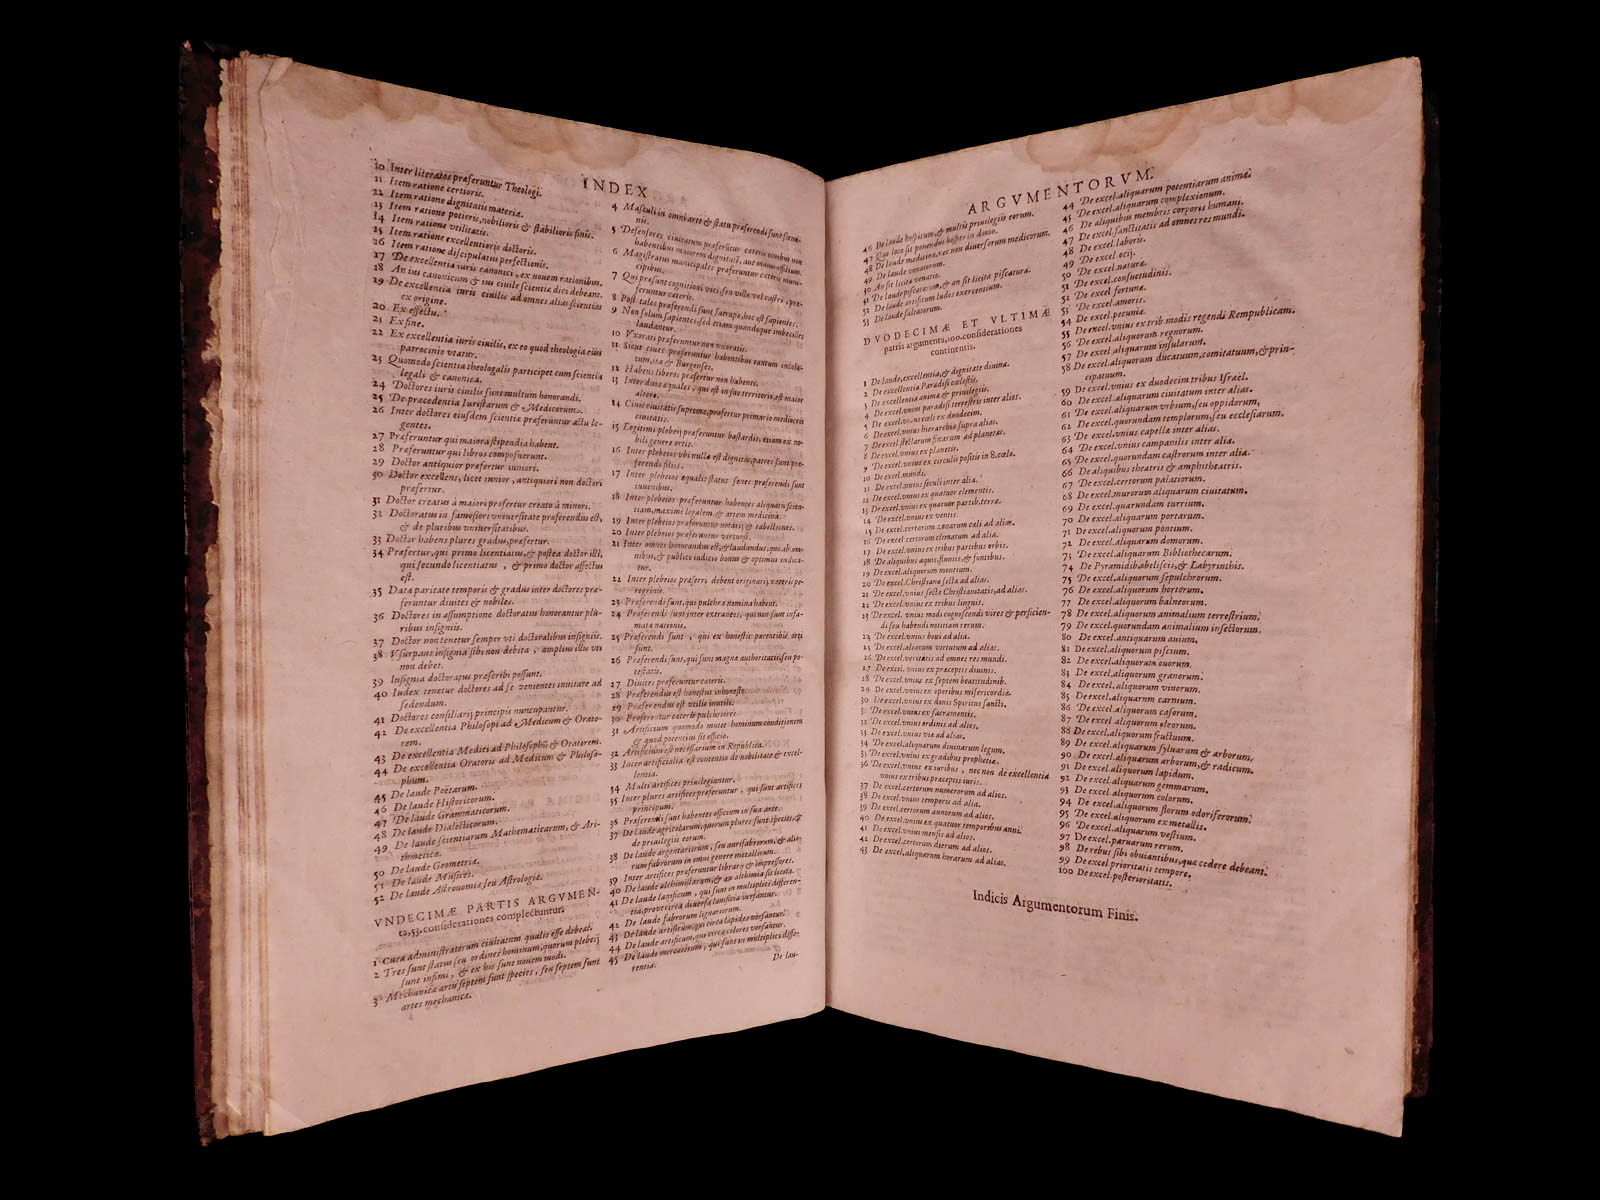 INDEX
10 Inter literatos præferuntur Theologi.
11 Item ratione certioris.
12 Item ratione dignitatis materiæ.
13 Item ratione potioris, nobilioris & stabilioris finis.
14 Item ratione vtilitatis.
15 Item ratione excellentioris doctoris.
16 Item ratione discipulatus perfectionis.
17 De excellentia iuris canonici, ex nouem rationibus.
18 An ius canonicum & ius ciuile scientiæ dici debeant.
19 De excellentia iuris ciuilis ad omnes alias scientias
ex origine.
20 Ex effectu.
21 Ex fine.
22 Ex excellentia iuris ciuilis, ex eo quod theologia eius
patrocinio vtatur.
23 Quomodo scientia theologalis participet cum scientia
legali & canonica.
24 Doctores iuris ciuilis sunt multum honorandi.
25 De præcedentia Iuristarum & Medicorum.
26 Inter doctores eiusdem scientiæ præferuntur actu le-
gentes.
27 Præferuntur qui maiora stipendia habent.
28 Præferuntur qui libros composuerunt.
29 Doctor antiquior præfertur iuniori.
30 Doctor excellens, licet iunior, antiquiori non doctori
præfertur.
31 Doctor creatus à maiori præfertur creato à minori.
32 Doctoratus in famosiori vniuersitate præferendus est,
& de pluribus vniuersitatibus.
33 Doctor habens plures gradus, præfertur.
34 Præfertur, qui primo licentiatus, & postea doctor illi,
qui secundo licentiatus, & primo doctor affectus
est.
35 Data paritate temporis & gradus inter doctores præ-
feruntur diuites & nobiles.
36 Doctores in assumptione doctoratus honorantur plu-
ribus insigniis.
37 Doctor non tenetur semper vti doctoralibus insigniis.
38 Vsurpans insignia sibi non debita, amplius illis vti
non debet.
39 Insignia doctoratus præscribi possunt.
40 Iudex tenetur doctores ad se venientes inuitare ad
sedendum.
41 Doctores consiliarij principis nuncupantur.
42 De excellentia Philosopi ad Medicum & Orato-
rem.
43 De excellentia Medici ad Philosophū & Oratorem.
44 De excellentia Oratoris ad Medicum & Philoso-
phum.
45 De laude Poëtarum.
46 De laude Historicorum.
47 De laude Grammaticorum.
48 De laude Dialecticorum.
49 De laude scientiarum Mathematicarum, & Ari-
thmeticæ.
50 De laude Geometriæ.
51 De laude Musices.
52 De laude Astronomiæ seu Astrologiæ.
VNDECIMÆ PARTIS ARGVMEN-
ta, 53. considerationes complectuntur.
1 Cura administratorum ciuitatum qualis esse debeat.
2 Tres sunt status seu ordines hominum, quorum plebeij
sunt infimi, & ex his sunt nouem modi.
3 Mechanicæ artis septem sunt species, seu septem sunt
artes mechanicæ.
4 Masculi in omni arte & statu præferendi sunt fœmi-
nis.
5 Defensores ciuitatum præferūtur cæteris ciuibus non
habentibus maiorem dignitatē, aut maius officium.
6 Magistratus municipales præferuntur cæteris muni-
cipibus.
7 Qui præsunt cognitioni vici seu villæ, vel castri, præ-
feruntur cæteris.
8 Post tales præferendi sunt sacrapij, hoc est sapientes.
9 Non solum sapientes, sed etiam quandoque imbecilles
laudantur.
10 Vxorati præferuntur non vxoratis.
11 Sicque ciues præferuntur habentibus tantum incola-
tum, ita & Burgenses.
12 Habens liberos præfertur non habenti.
13 Inter duos æquales, qui est in suo territorio, est maior
altero.
14 Ciuis ciuitatis supremæ, præfertur primario mediocris
ciuitatis.
15 Legitimi plebeij præferuntur bastardis, etiam ex no-
bili genere ortis.
16 Inter plebeios vbi nulla est dignitas, patres sunt præ-
ferendi filiis.
17 Inter plebeios æqualis status senes præferendi sunt
iuuenibus.
18 Inter plebeios præferuntur habentes aliquam scien-
tiam, maxime legalem & artem medicinæ.
19 Inter plebeios præferuntur notarij & tabelliones.
20 Inter plebeios præferuntur virtuosi.
21 Inter omnes honorandus est, & laudandus, qui ab om-
nibus, & publico iudicio bonus & optimus iudica-
tur.
22 Inter plebeios præferri debent originarij, cæteris pe-
regrinis.
23 Præferendi sunt, qui pulchra nomina habent.
24 Præferendi sunt inter extraneos, qui non sunt infa-
matæ nationis.
25 Præferendi sunt, qui ex honestis parentibus orti
sunt.
26 Præferendi sunt, qui sunt magnæ authoritatis, seu po-
testatis.
27 Diuites præferuntur cæteris.
28 Præferendus est honestus inhonesto.
29 Præferendus est vtilis inutili.
30 Præferentur cæteris pulchriores.
31 Artificium quomodo mutet hominum conditionem
& quod potentius sit officio.
32 Artificium est necessarium in Republica.
33 Inter artificialia est contentio de nobilitate & excel-
lentia.
34 Multi artifices priuilegiantur.
35 Inter plures artifices præferuntur, qui sunt artifices
principum.
36 Præferendi sunt habentes officium in sua arte.
37 De laude agricolarum, quorum plures sunt species, &
de priuilegiis eorum.
38 De laude argentariorum, seu aurifabrorum, & alio-
rum fabrorum in omni genere metallicum.
39 Inter artifices præferuntur librarij & impressores.
40 De laude alchimistarum, & an alchimia sit licita.
41 De laude lanificum, qui sunt in multiplici differen-
tia, prout circa diuersa lanificia versantur.
42 De laude fabrorum lignariorum.
43 De laude artificum, qui circa lapides versantur.
44 De laude artificum, qui circa colores versantur.
45 De laude mercatorum, qui sunt in multiplici diffe-
rentia.
De lau-
ARGVMENTORVM.
46 De laude hospitum, & multis priuilegiis eorum.
47 Quo loco sit ponendus hospes in domo.
48 De laude medicinæ, nec non diuersorum medicorum.
49 De laude venatorum.
50 An sit licita venatio.
51 De laude piscatorum, & an sit licita piscatura.
52 De laude artificum ludos exercentium.
53 De laude saltatorum.
DVODECIMÆ ET VLTIMÆ
partis argumenta, 100. considerationes
continentis.
1 De laude, excellentia, & dignitate diuina.
2 De excellentia Paradisi cœlestis.
3 De excellentia animæ & priuilegiis.
4 De excel. vnius paradisi terrestris inter alios.
5 De excel. vnius cœli ex duodecim.
6 De excel. vnius hierarchiæ supra alias.
7 De excel. stellarum fixarum ad planetas.
8 De excel. vnius ex planetis.
9 De excel. vnius ex circulis positis in 8. cœlo.
10 De excel. mundi.
11 De excel. vnius seculi inter alia.
12 De excel. vnius ex quatuor elementis.
13 De excel. vnius ex quatuor partib. terræ.
14 De excel. vnius ex ventis.
15 De excel. certorum zonarum cœli ad alias.
16 De excel. certorum climatum ad alia.
17 De excel. vnius ex tribus partibus orbis.
18 De aliquibus aquis, fluuiis, & fontibus.
19 De excel. aliquorum montium.
20 De excel. Christianæ sectæ ad alias.
21 De excel. vnius sectæ Christianitatis, ad alias.
22 De excel. vnius ex tribus linguis.
23 De excel. vnius modi cognoscendi vires & perficien-
di seu habendi notitiam rerum.
24 De excel. vnius boni ad alia.
25 De excel. aliarum virtutum ad alias.
26 De excel. veritatis ad omnes res mundi.
27 De excel. vnius ex præceptis diuinis.
28 De excel. vnius ex septem beatitudinib.
29 De excel. vnius ex operibus misericordiæ.
30 De excel. vnius ex donis Spiritus sancti.
31 De excel. vnius ex sacramentis.
32 De excel. vnius ordinis ad alios.
33 De excel. vnius viæ ad alias.
34 De excel. aliquarum diuinarum legum.
35 De excel. vnius ex gradibus prophetiæ.
36 De excel. vnius ex iuribus, nec non de excellentia
vnius ex tribus præceptis iuris.
37 De excel. certorum numerorum ad alios.
38 De excel. vnius temporis ad alia.
39 De excel. certorum annorum ad alios.
40 De excel. vnius ex quatuor temporibus anni.
41 De excel. vnius mensis ad alios.
42 De excel. certorum dierum ad alios.
43 De excel. aliquarum horarum ad alias.
44 De excel. aliquarum potentiarum animæ.
45 De excel. aliquarum complexionum.
46 De aliquibus membris corporis humani.
47 De excel. sanctitatis ad omnes res mundi.
48 De excel. laboris.
49 De excel. ocij.
50 De excel. naturæ.
51 De excel. consuetudinis.
52 De excel. fortunæ.
53 De excel. amoris.
54 De excel. pecuniæ.
55 De excel. vnius ex trib. modis regendi Rempublicam.
56 De excel. aliquorum regnorum.
57 De excel. aliquarum insularum.
58 De excel. aliquorum ducatuum, comitatuum, & prin-
cipatuum.
59 De excel. vnius ex duodecim tribus Israël.
60 De excel. aliquarum ciuitatum inter alias.
61 De excel. aliquarum vrbium, seu oppidorum.
62 De excel. quorundam templorum, seu ecclesiarum.
63 De excel. vnius capellæ inter alias.
64 De excel. vnius campanilis inter alia.
65 De excel. quorundam castrorum inter alia.
66 De aliquibus theatris & amphitheatris.
67 De excel. certorum palatiorum.
68 De excel. murorum aliquarum ciuitatum.
69 De excel. quarundam turrium.
70 De excel. aliquarum portarum.
71 De excel. aliquorum pontium.
72 De excel. aliquarum domorum.
73 De excel. aliquarum Bibliothecarum.
74 De Pyramidib. obeliscis, & Labyrinthis.
75 De excel. aliquorum sepulchrorum.
76 De excel. aliquorum hortorum.
77 De excel. aliquorum balneorum.
78 De excel. aliquorum animalium terrestrium.
79 De excel. quorundam animalium insectorum.
80 De excel. antiquarum auium.
81 De excel. aliquorum piscium.
82 De excel. aliquorum ouorum.
83 De excel. aliquorum granorum.
84 De excel. aliquorum vinorum.
85 De excel. aliquarum carnium.
86 De excel. aliquorum casorum.
87 De excel. aliquorum oleorum.
88 De excel. aliquorum fructuum.
89 De excel. aliquarum syluarum & arborum.
90 De excel. aliquarum arborum, & radicum.
91 De excel. aliquorum lapidum.
92 De excel. aliquarum gemmarum.
93 De excel. aliquorum colorum.
94 De excel. aliquorum florum odoriferorum.
95 De excel. aliquorum ex metallis.
96 De excel. aliquarum vestium.
97 De excel. paruarum rerum.
98 De rebus sibi obuiantibus, quæ cedere debeant.
99 De excel. prioritatis tempore.
100 De excel. posterioritatis.
Indicis Argumentorum Finis.